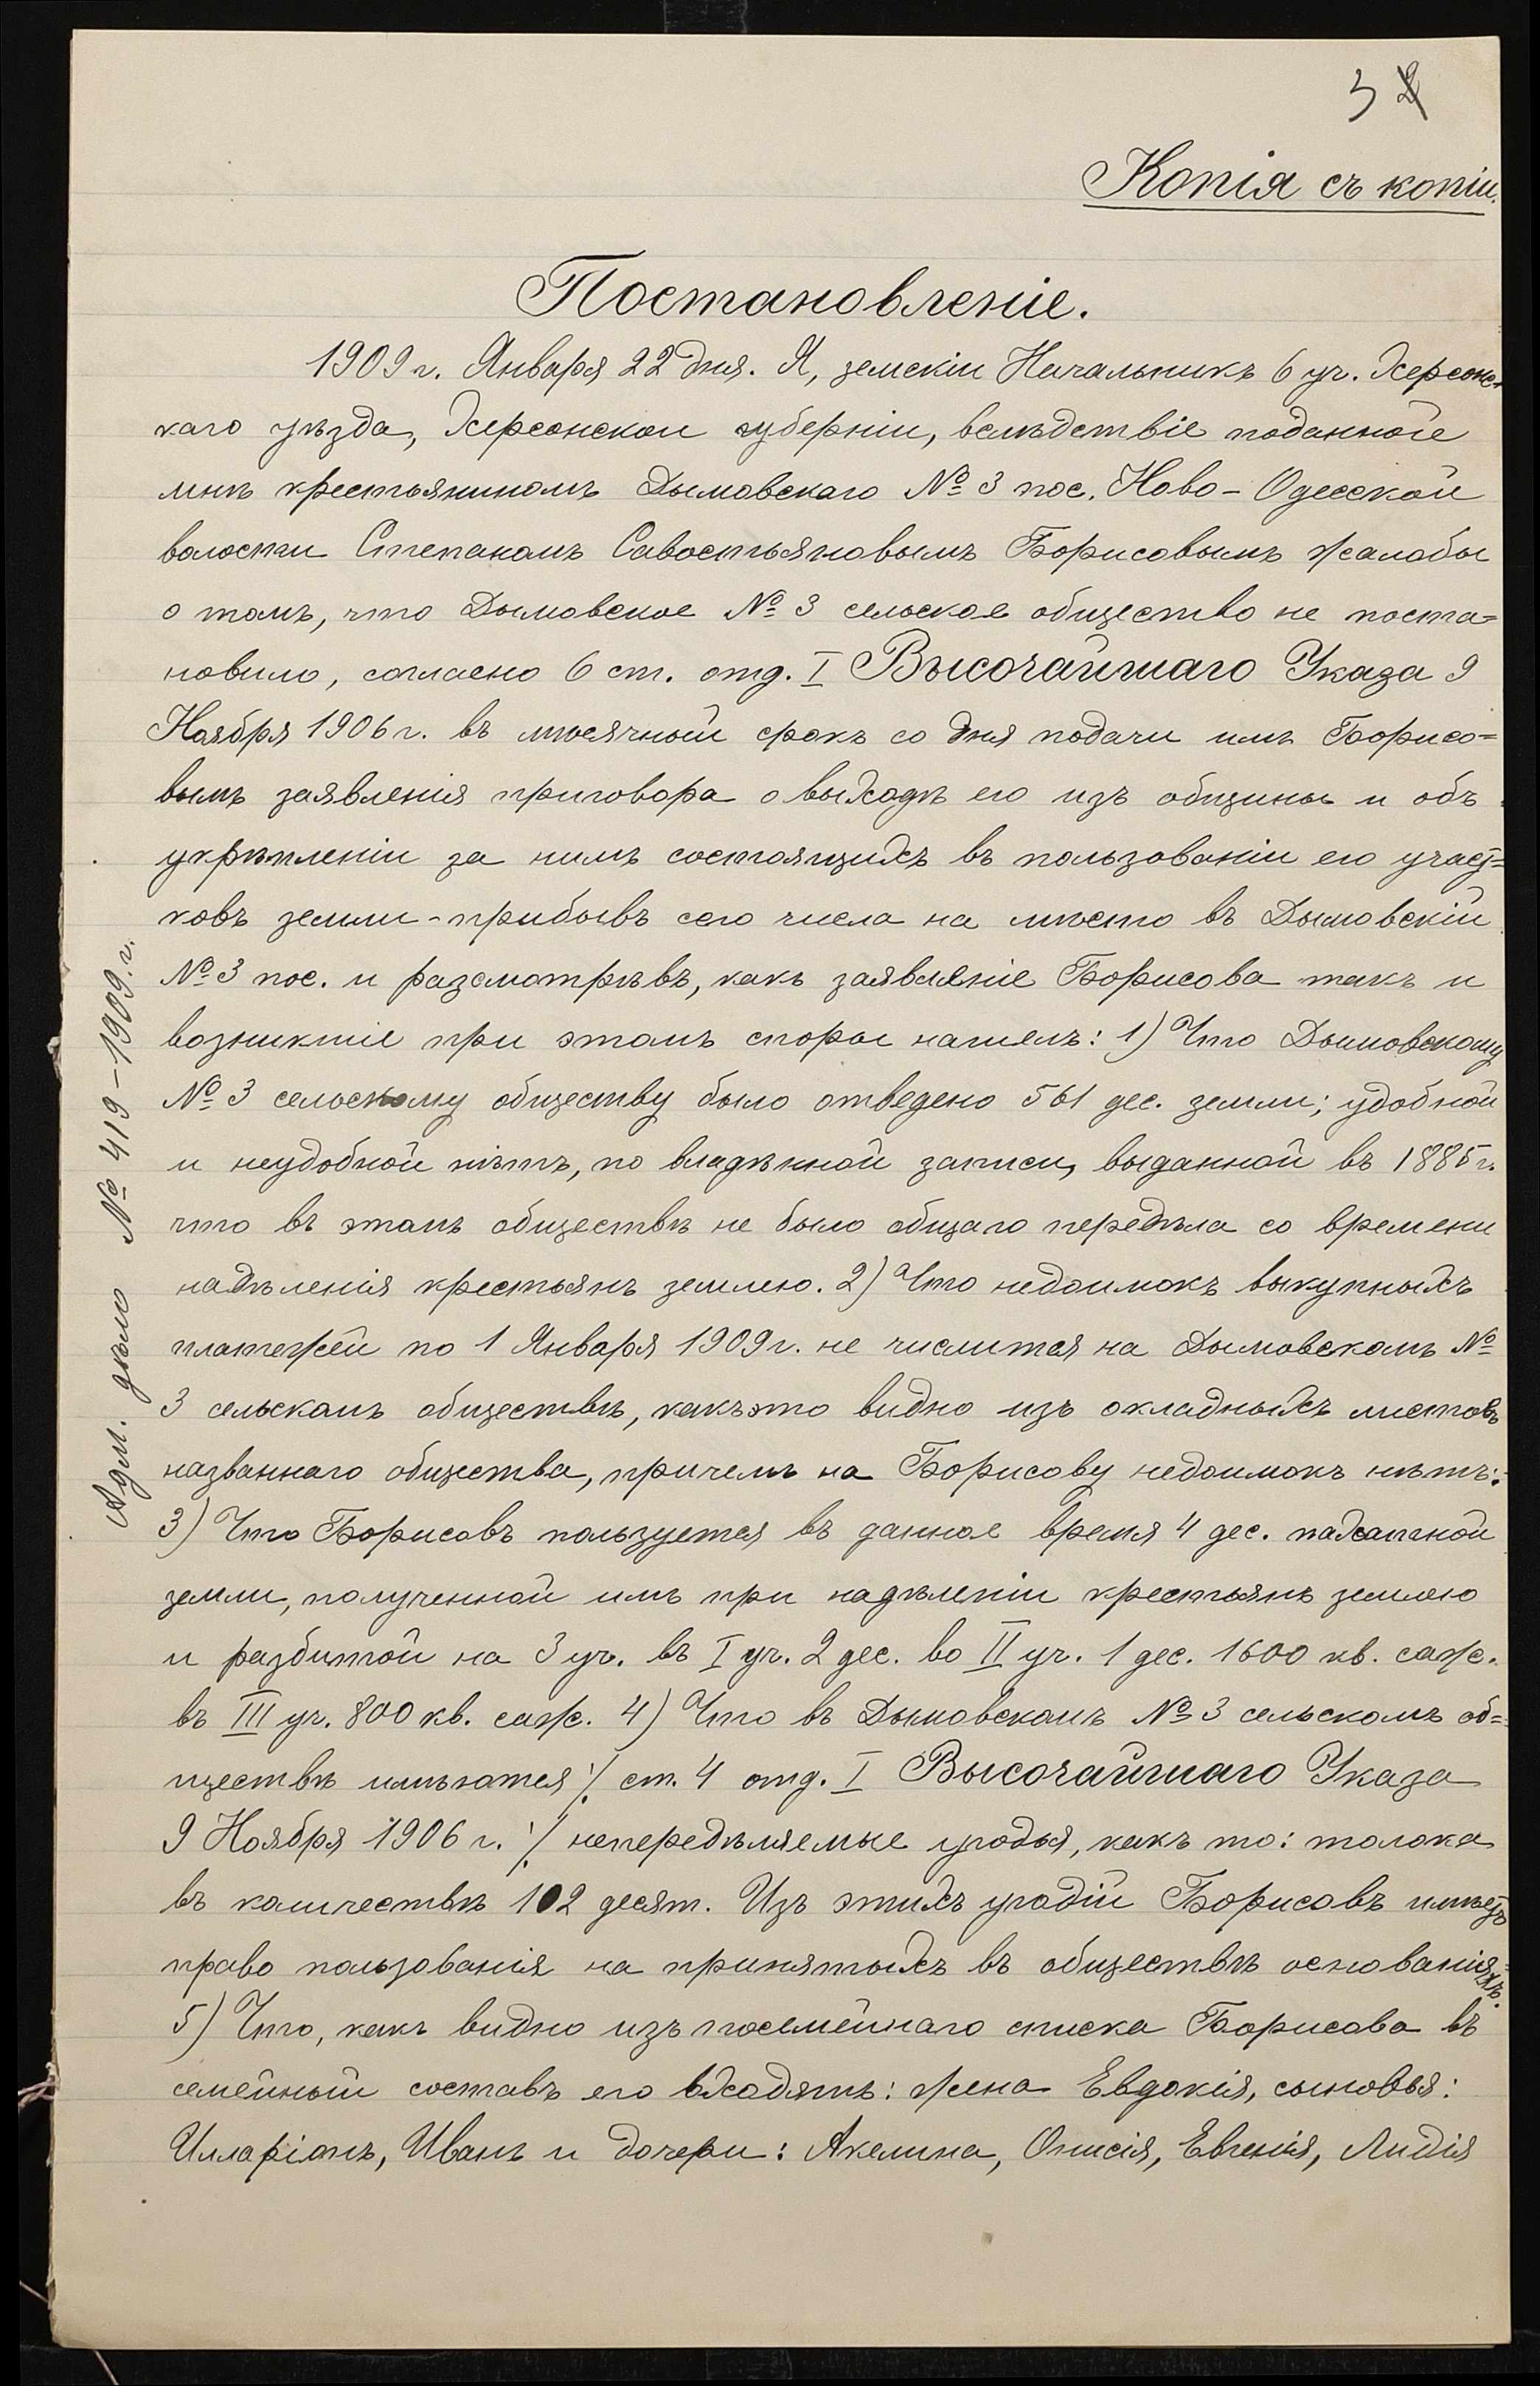 3 2
Копія съ копіи.
Постановленіе.
1909 г. Января 22 дня. Я, земскій Начальникъ 6 уч. Херсонс-
каго уѣзда, Херсонской губерніи, вслѣдствіе поданной
мнѣ крестьяниномъ Дымовскаго № 3 пос. Ново-Одесской
волости Степаномъ Савостьяновымъ Борисовымъ жалобы
о томъ, что Дымовское № 3 сельское общество не поста=
новило, согласно 6 ст. отд. I Высочайшаго Указа 9
Ноября 1906 г. въ мѣсячный срокъ со дня подачи имъ Борисо=
вымъ заявленія приговора о выходѣ его изъ общины и объ
укрѣпленіи за нимъ состоящихъ въ пользованіи его участ=
ковъ земли - прибывъ сего числа на мѣсто въ Дымовскій
№ 3 пос. и разсмотрѣвъ, какъ заявленіе Борисова такъ и
возникшіе при этомъ споры нашелъ: 1) Что Дымовскому
№ 3 сельскому обществу было отведено 561 дес. земли; удобной
и неудобной нѣтъ, по владѣнной записи, выданной въ 1885 г.
что въ этомъ обществѣ не было общаго передѣла со времени
надѣленія крестьянъ землею. 2) Что недоимокъ выкупныхъ
платежей по 1 Января 1909 г. не числится на Дымовскомъ №
3 сельскомъ обществѣ, какъ это видно изъ окладныхъ листовъ
названнаго общества, причемъ на Борисову недоимокъ нѣтъ:
3) Что Борисовъ пользуется въ данное время 4 дес. пахатной
земли, полученной имъ при надѣленіи крестьянъ землею
и разбитой на 3 уч. въ I уч. 2 дес. во II уч. 1 дес. 1600 кв. саж.
въ III уч. 800 кв. саж. 4) Что въ Дымовскомъ № 3 сельскомъ об=
ществѣ имѣются ./. ст. 4 отд. I Высочайшаго Указа
9 Ноября 1906 г. ./. непередѣляемые угодья, какъ то: толока
въ количествѣ 102 десят. Изъ этихъ угодій Борисовъ имѣетъ
право пользованія на принятыхъ въ обществѣ основаніяхъ.
5) Что, какъ видно изъ посемейнаго списка Борисова въ
семейный составъ его входятъ: жена Евдокія, сыновья:
Илларіонъ, Иванъ и дочери: Акелина, Онисія, Евгенія, Лидія
Адм. дѣло № 419-1909. г.